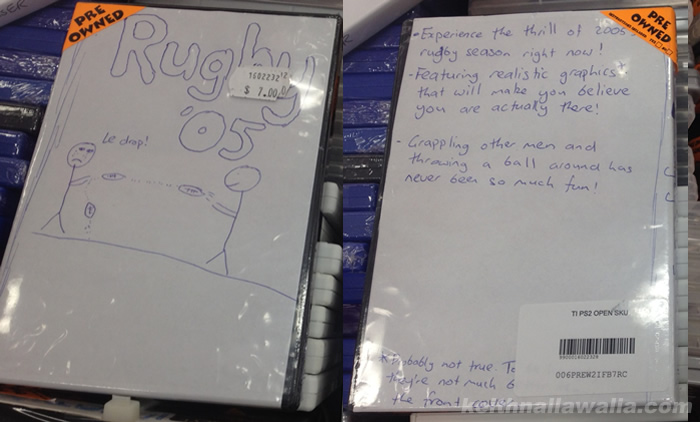 PRE
OWNED
Rugby
'05
$ 7.00
Le drop!
PRE
OWNED
- Experience the thrill of 2005
rugby season right now!
- Featuring realistic graphics*
that will make you believe
you are actually there!
- Grappling other men and
throwing a ball around has
never been so much fun!
TI PS2 OPEN SKU
006PREW2IFB7RC
* Probably not true.
they're not much
the front cover
kenhnallawalla.com